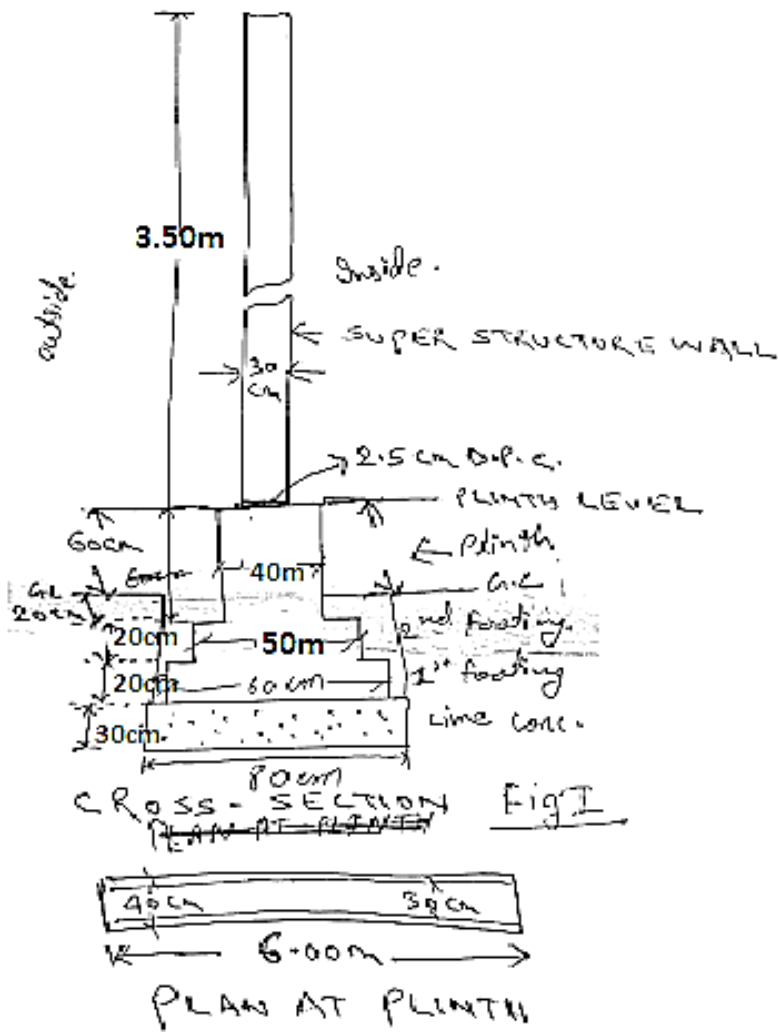 3.50m
outside.
Inside.
SUPER STRUCTURE WALL
30
cm
2.5 cm D.P.C.
PLINTH LEVEL
60cm
Plinth
40m
G.L
G.L
20cm
20cm
50m
2nd footing.
20cm
60cm
1st footing
30cm
Lime conc.
80cm
CROSS-SECTION
Fig I
PLAN AT PLINTH
40cm
30cm
6.00m
PLAN AT PLINTH